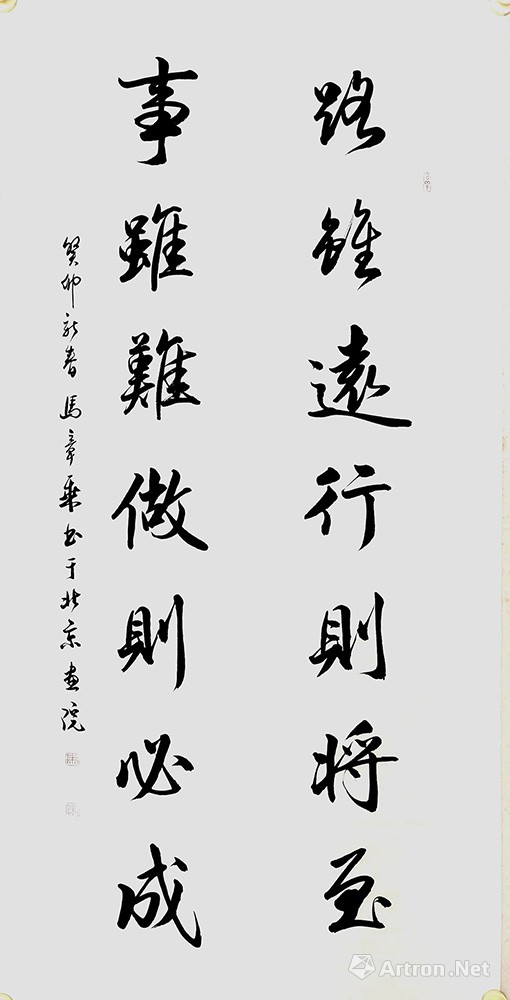 路雖遠行則將至
事雖難做則必成
癸卯新春馬章乘书于北京画院
Artron.Net